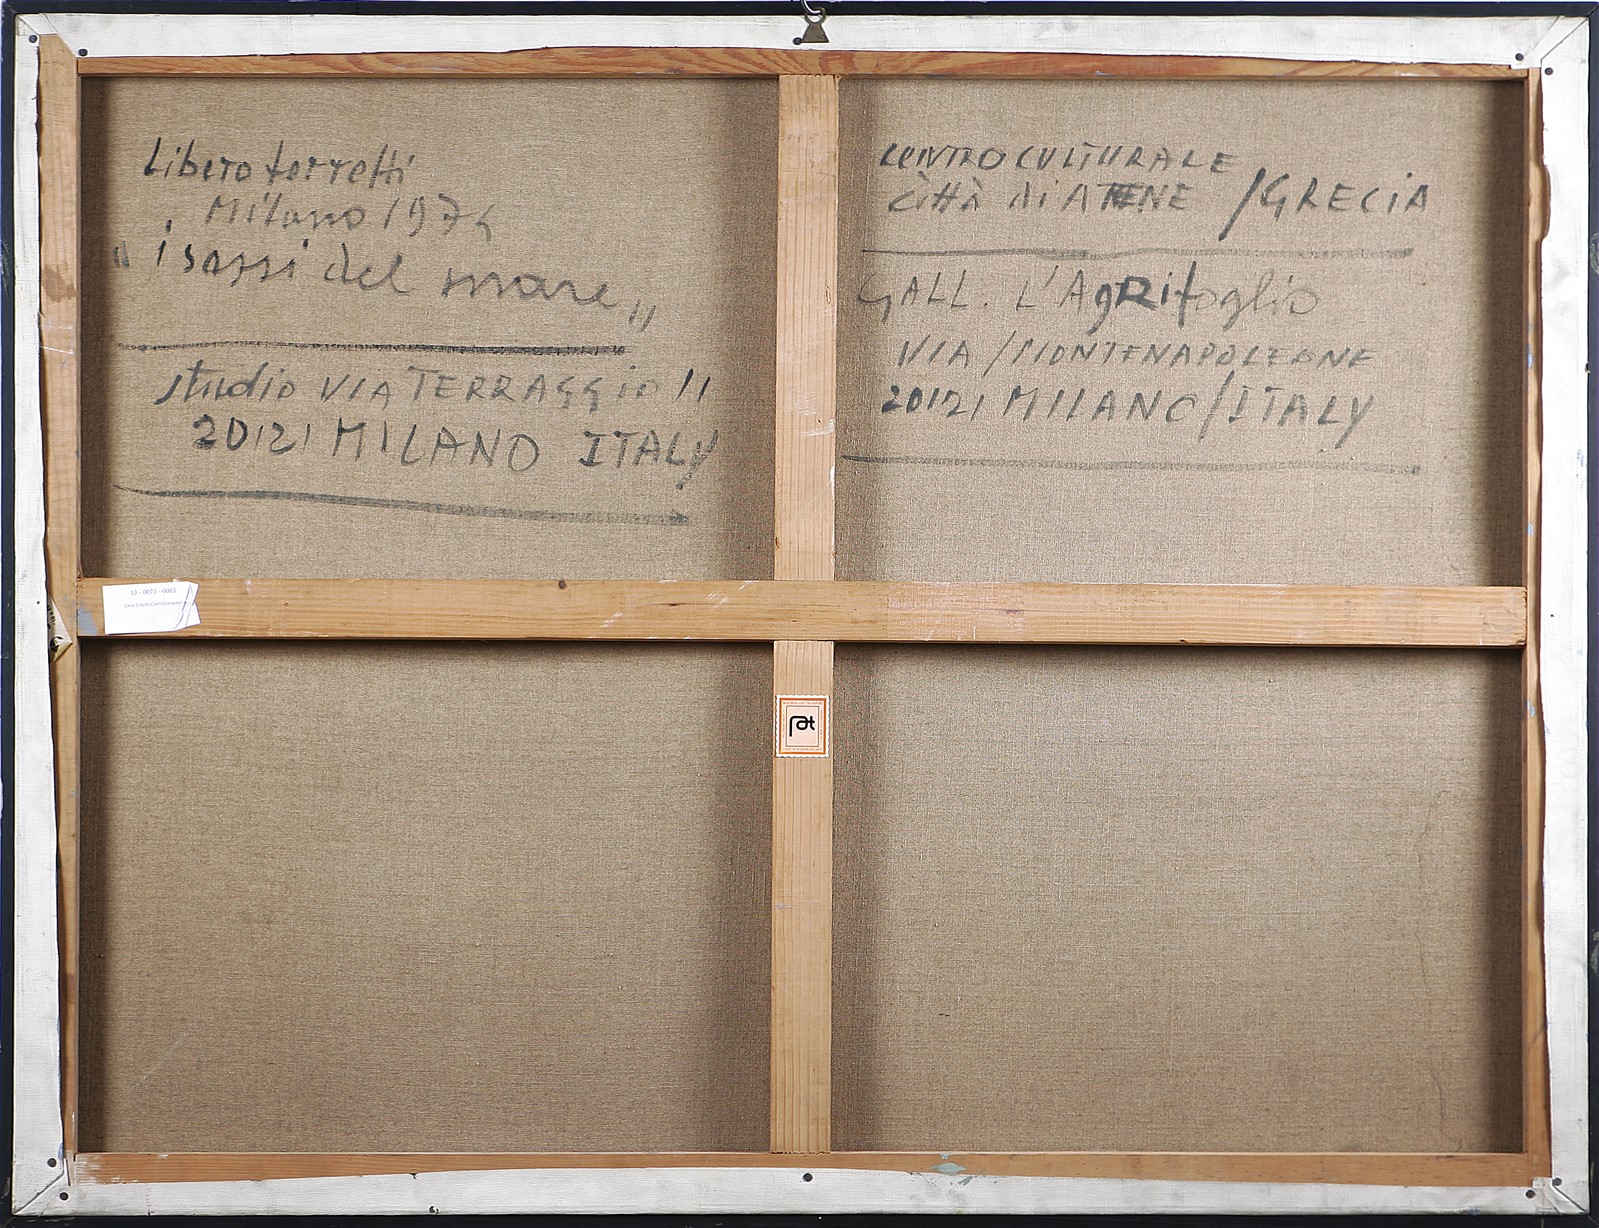 Libero ferretti
Milano 1974
"i sassi del mare"
studio VIA TERRAGGIO 11
20121 MILANO ITALY
CENTRO CULTURALE
città di ATENE /GRECIA
GALL. L'AgRifoglio
VIA /MONTENAPOLEONE
20121 MILANO/ITALY
13 - 0073 - 0083
Pat